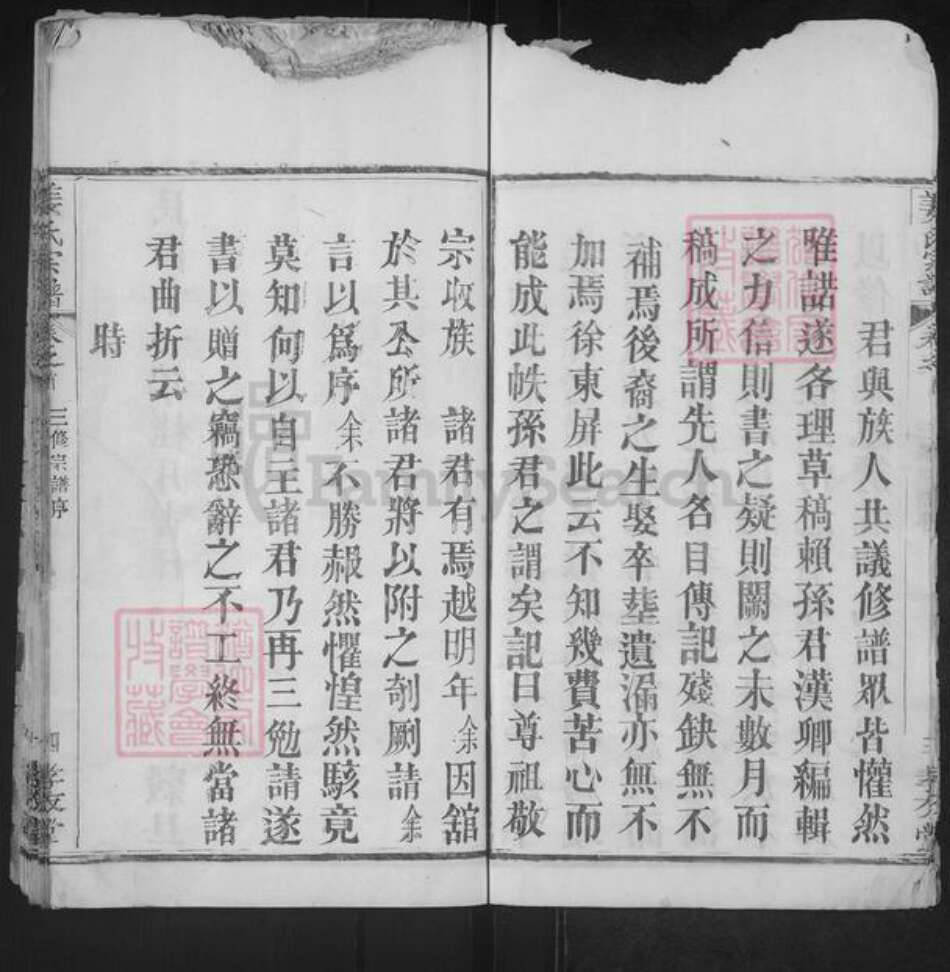 君與族人共議修譜眾皆懽然
唯諾遂各理草稿賴孫君漢卿編輯
之力信則書之疑則闕之未數月而
稿成所謂先人名目傳記殘缺無不
補焉後裔之生娶卒塟遺漏亦無不
加焉徐東屏此云不知幾費苦心而
能成此帙孫君之謂矣記曰尊祖敬
宗收族 諸君有焉越明年余因舘
於其公所諸君將以附之剞劂請余
言以爲序余不勝赧然懼惶然駭竟
莫知何以自主諸君乃再三勉請遂
書以贈之竊恐辭之不工終無當諸
君曲折云
時
姜氏宗譜
卷之首
三修宗譜序
四
FamilySearch